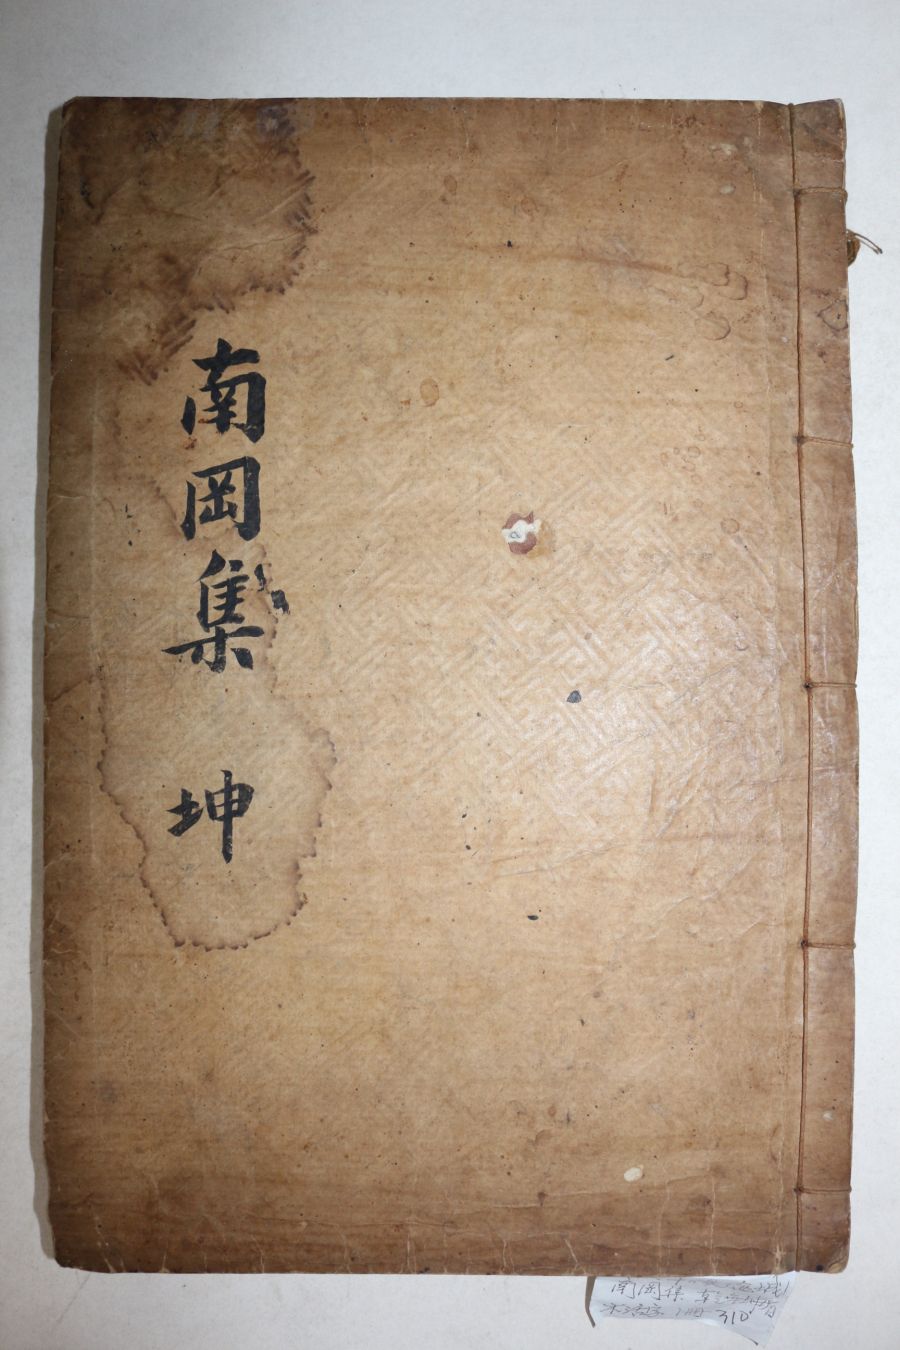 南岡集 坤
南岡集
1冊 310